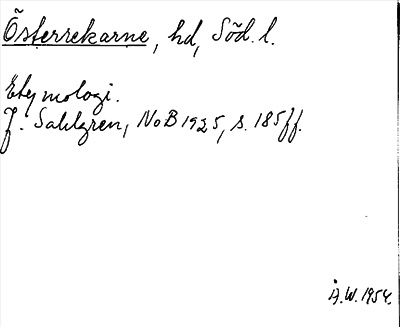 Österrekarne, hd, Söd. l.
Etymologi.
J. Sahlgren, NoB 1925, s. 185ff.
Å.W. 1954.